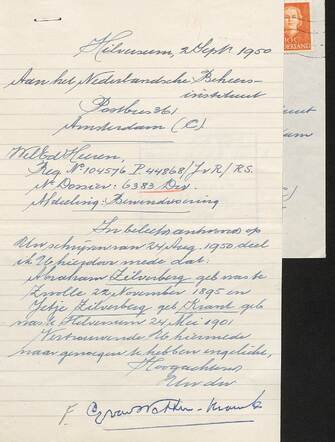 Hilversum, 2 Sept. 1950
Aan het Nederlandsche Beheers-
instituut
Postbus 261
Amsterdam (C)
WelEd. Heeren,
Reg. No 104576 P. 44868/JvR/RS.
No Dossier: 6383 Div.
Afdeeling: Bewindvoering
In beleefd antwoord op
Uw schrijven van 24 Aug. 1950 deel
ik U hierdoor mede dat:
Abraham Zilverberg geb. was te
Zwolle 22 November 1895 en
Jetje Zilverberg geb. Krant geb.
was te Hilversum 24 Mei 1901
Vertrouwende U hiermede
naar genoegen te hebben ingelicht,
Hoogachtend
NEDERLAND